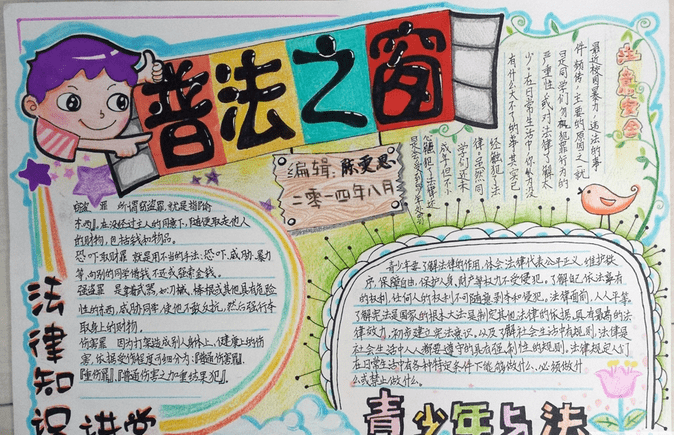 普法之窗
编辑：陈雯思
二零一四年八月
注意安全
最近校园暴力，违法的事
件频传，主要的原因之一就
是同学们勿视犯罪行为的
严重性或对法律了解太
少。在日常生活中，你认为没
有什么大不了的事其实已
经触犯了法
律。虽然同
学们还未
成年但不
罪 所谓窃盗罪，就是指『偷
东西』，在没经过主人的同意下，随便取走他人
的财物，包括钱和物品。
恐吓取财罪 就是用不当的手法：恐吓、威胁、暴力
等，向别的同学借钱不还或强索金钱。
强盗罪 是拿武器，如刀械、棒棍或其他具有危险
性的东西，威胁同学，使他不敢反抗，然后强行夺
取身上的财物。
伤害罪 因为打架造成别人身体上，健康上的伤
害，依据受伤程度可细分为：『普通伤害罪』、
『重伤罪』、『普通伤害之加重结果犯』。
法律知识讲堂
青少年要了解法律的作用，体会法律代表公平正义、维护秩
序、保障自由，保护人身、财产等权力不受侵犯，了解自己依法享有
的权利，任何人的权利不可随意剥夺和侵犯，法律面前，人人平等。
了解宪法是国家的根本大法是制定其他法律的依据，具有最高的法
律效力，初步建立宪法意识，以及了解社会生活中有规则，法律是
社会生活中人人都要遵守的具有强制性的规则。法律规定人们
在日常生活中有各种特定条件下能够做什么、必须做什
么或禁止做什么。
青少年与法